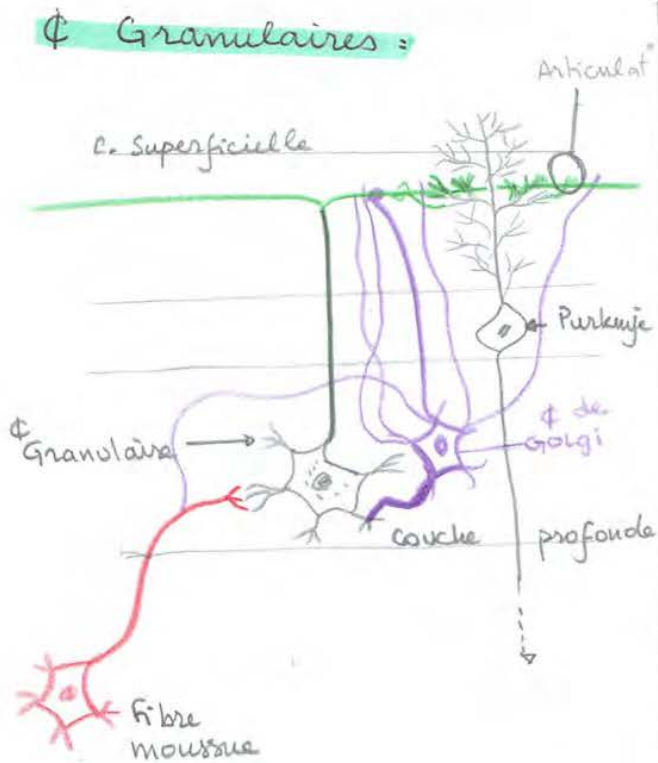 ₵ Granulaires :
Articulat°
C. Superficielle
Purkinje
₵ Granulaire
₵ de
Golgi
couche profonde
Fibre
moussue